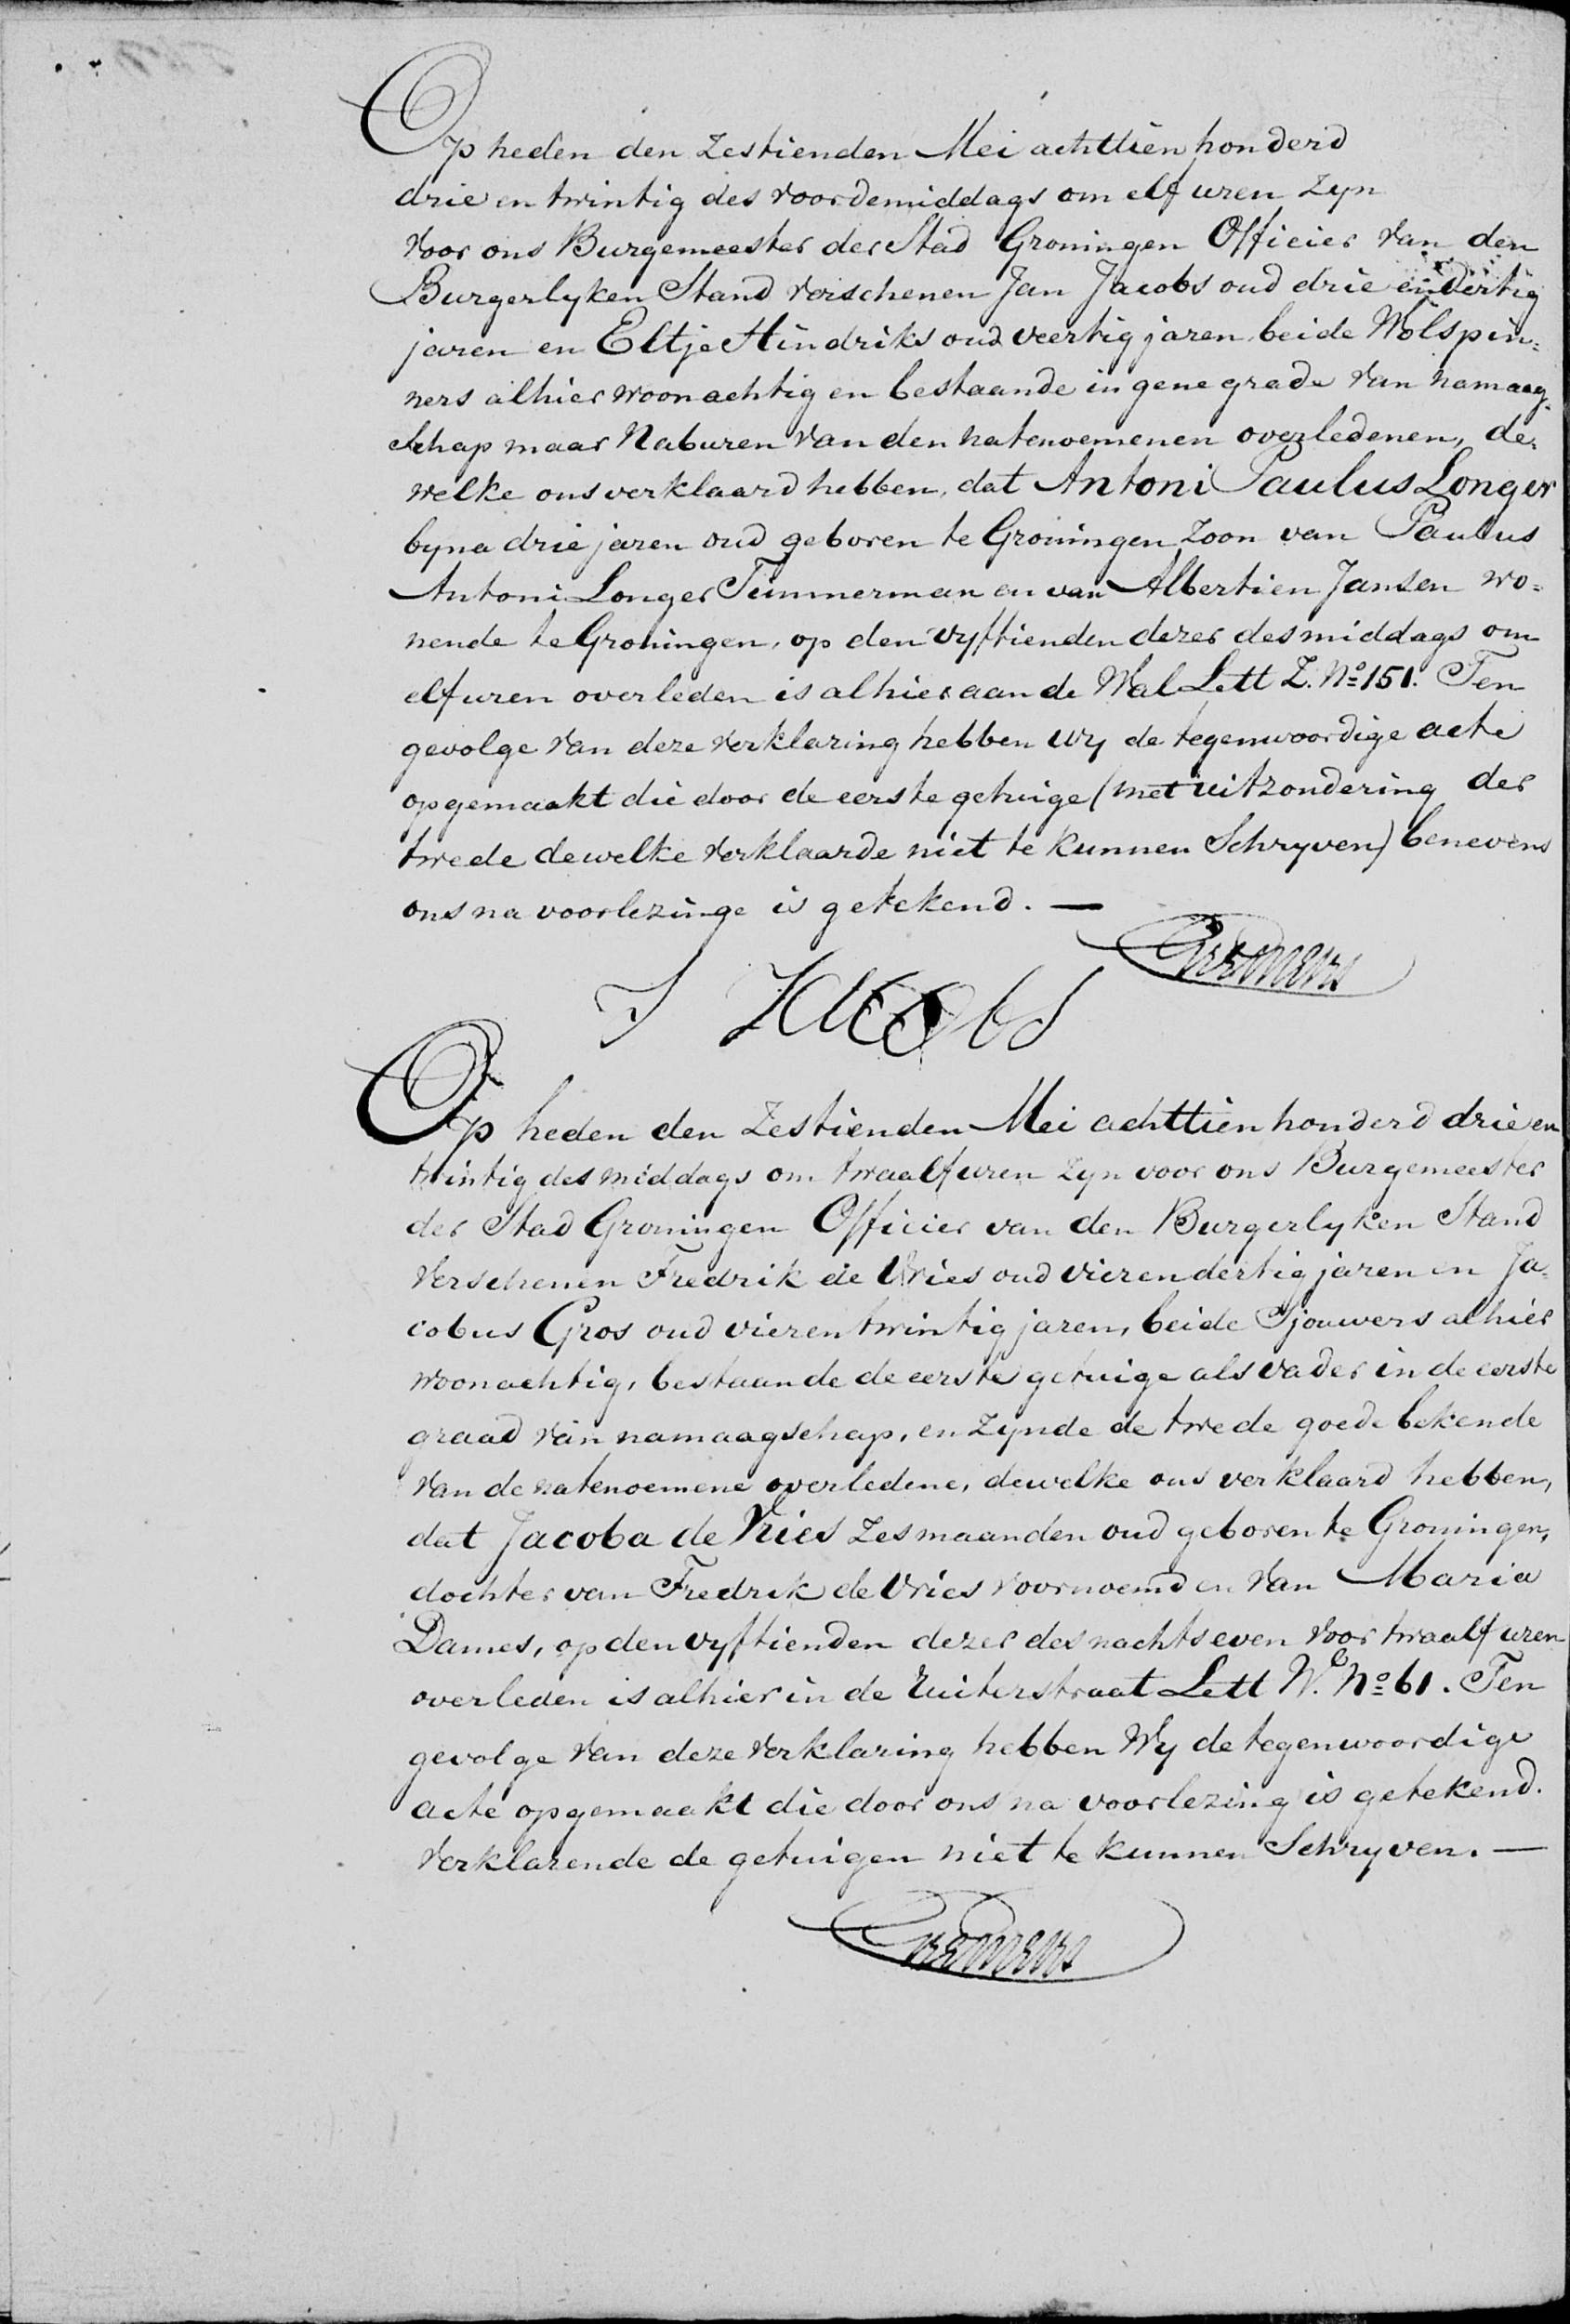 Op heden den Zestienden Mei achttien honderd
drie en twintig des voordemiddags om elf uren Zyn
voor ons Burgemeester der Stad Groningen Officier van den
Burgerlyken Stand verschenen Jan Jacobs oud drie en dertig
jaren en Eltje Hindriks oud veertig jaren beide Wolspin=
ners alhier woonachtig en bestaande in gene grade van namaag=
schap maar Naburen van den natenoemenen overledenen, de=
welke ons verklaard hebben, dat Antoni Paulus Longer
byna drie jaren oud geboren te Groningen Zoon van Paulus
Antoni Longer Timmerman en van Albertien Jansen wo=
nende te Groningen, op den vyftienden dezer des middags om
elf uren overleden is alhier aan de Wal Lett Z. No 151. Ten
gevolge van deze verklaring hebben wy de tegenwoordige acte
opgemaakt die door de eerste getuige (met uitzondering der
twede dewelke verklaarde niet te kunnen Schryven) benevens
ons na voorlezinge is getekend. —
J Jacobs
Op heden den Zestienden Mei achttien honderd drie en
twintig des middags om twaalf uren zyn voor ons Burgemeester
der Stad Groningen Officier van den Burgerlyken Stand
verschenen Fredrik de Vries oud vier en dertig jaren en Ja=
cobus Gros oud vier en twintig jaren, beide Sjouwers alhier
woonachtig, bestaande de eerste getuige als vader in de eerste
graad van namaagschap, en Zynde de twede goede bekende
van de natenoemene overledene, dewelke ons verklaard hebben,
dat Jacoba de Vries Zes maanden oud geboren te Groningen,
dochter van Fredrik de Vries voornoemd en van Maria
Dames, op den vyftienden dezer des nachts even voor twaalf uren
overleden is alhier in de Ruiterstraat Lett W. No 61. Ten
gevolge van deze verklaring hebben Wy de tegenwoordige
acte opgemaakt die door ons na voorlezing is getekend.
verklarende de getuigen niet te kunnen Schryven. —